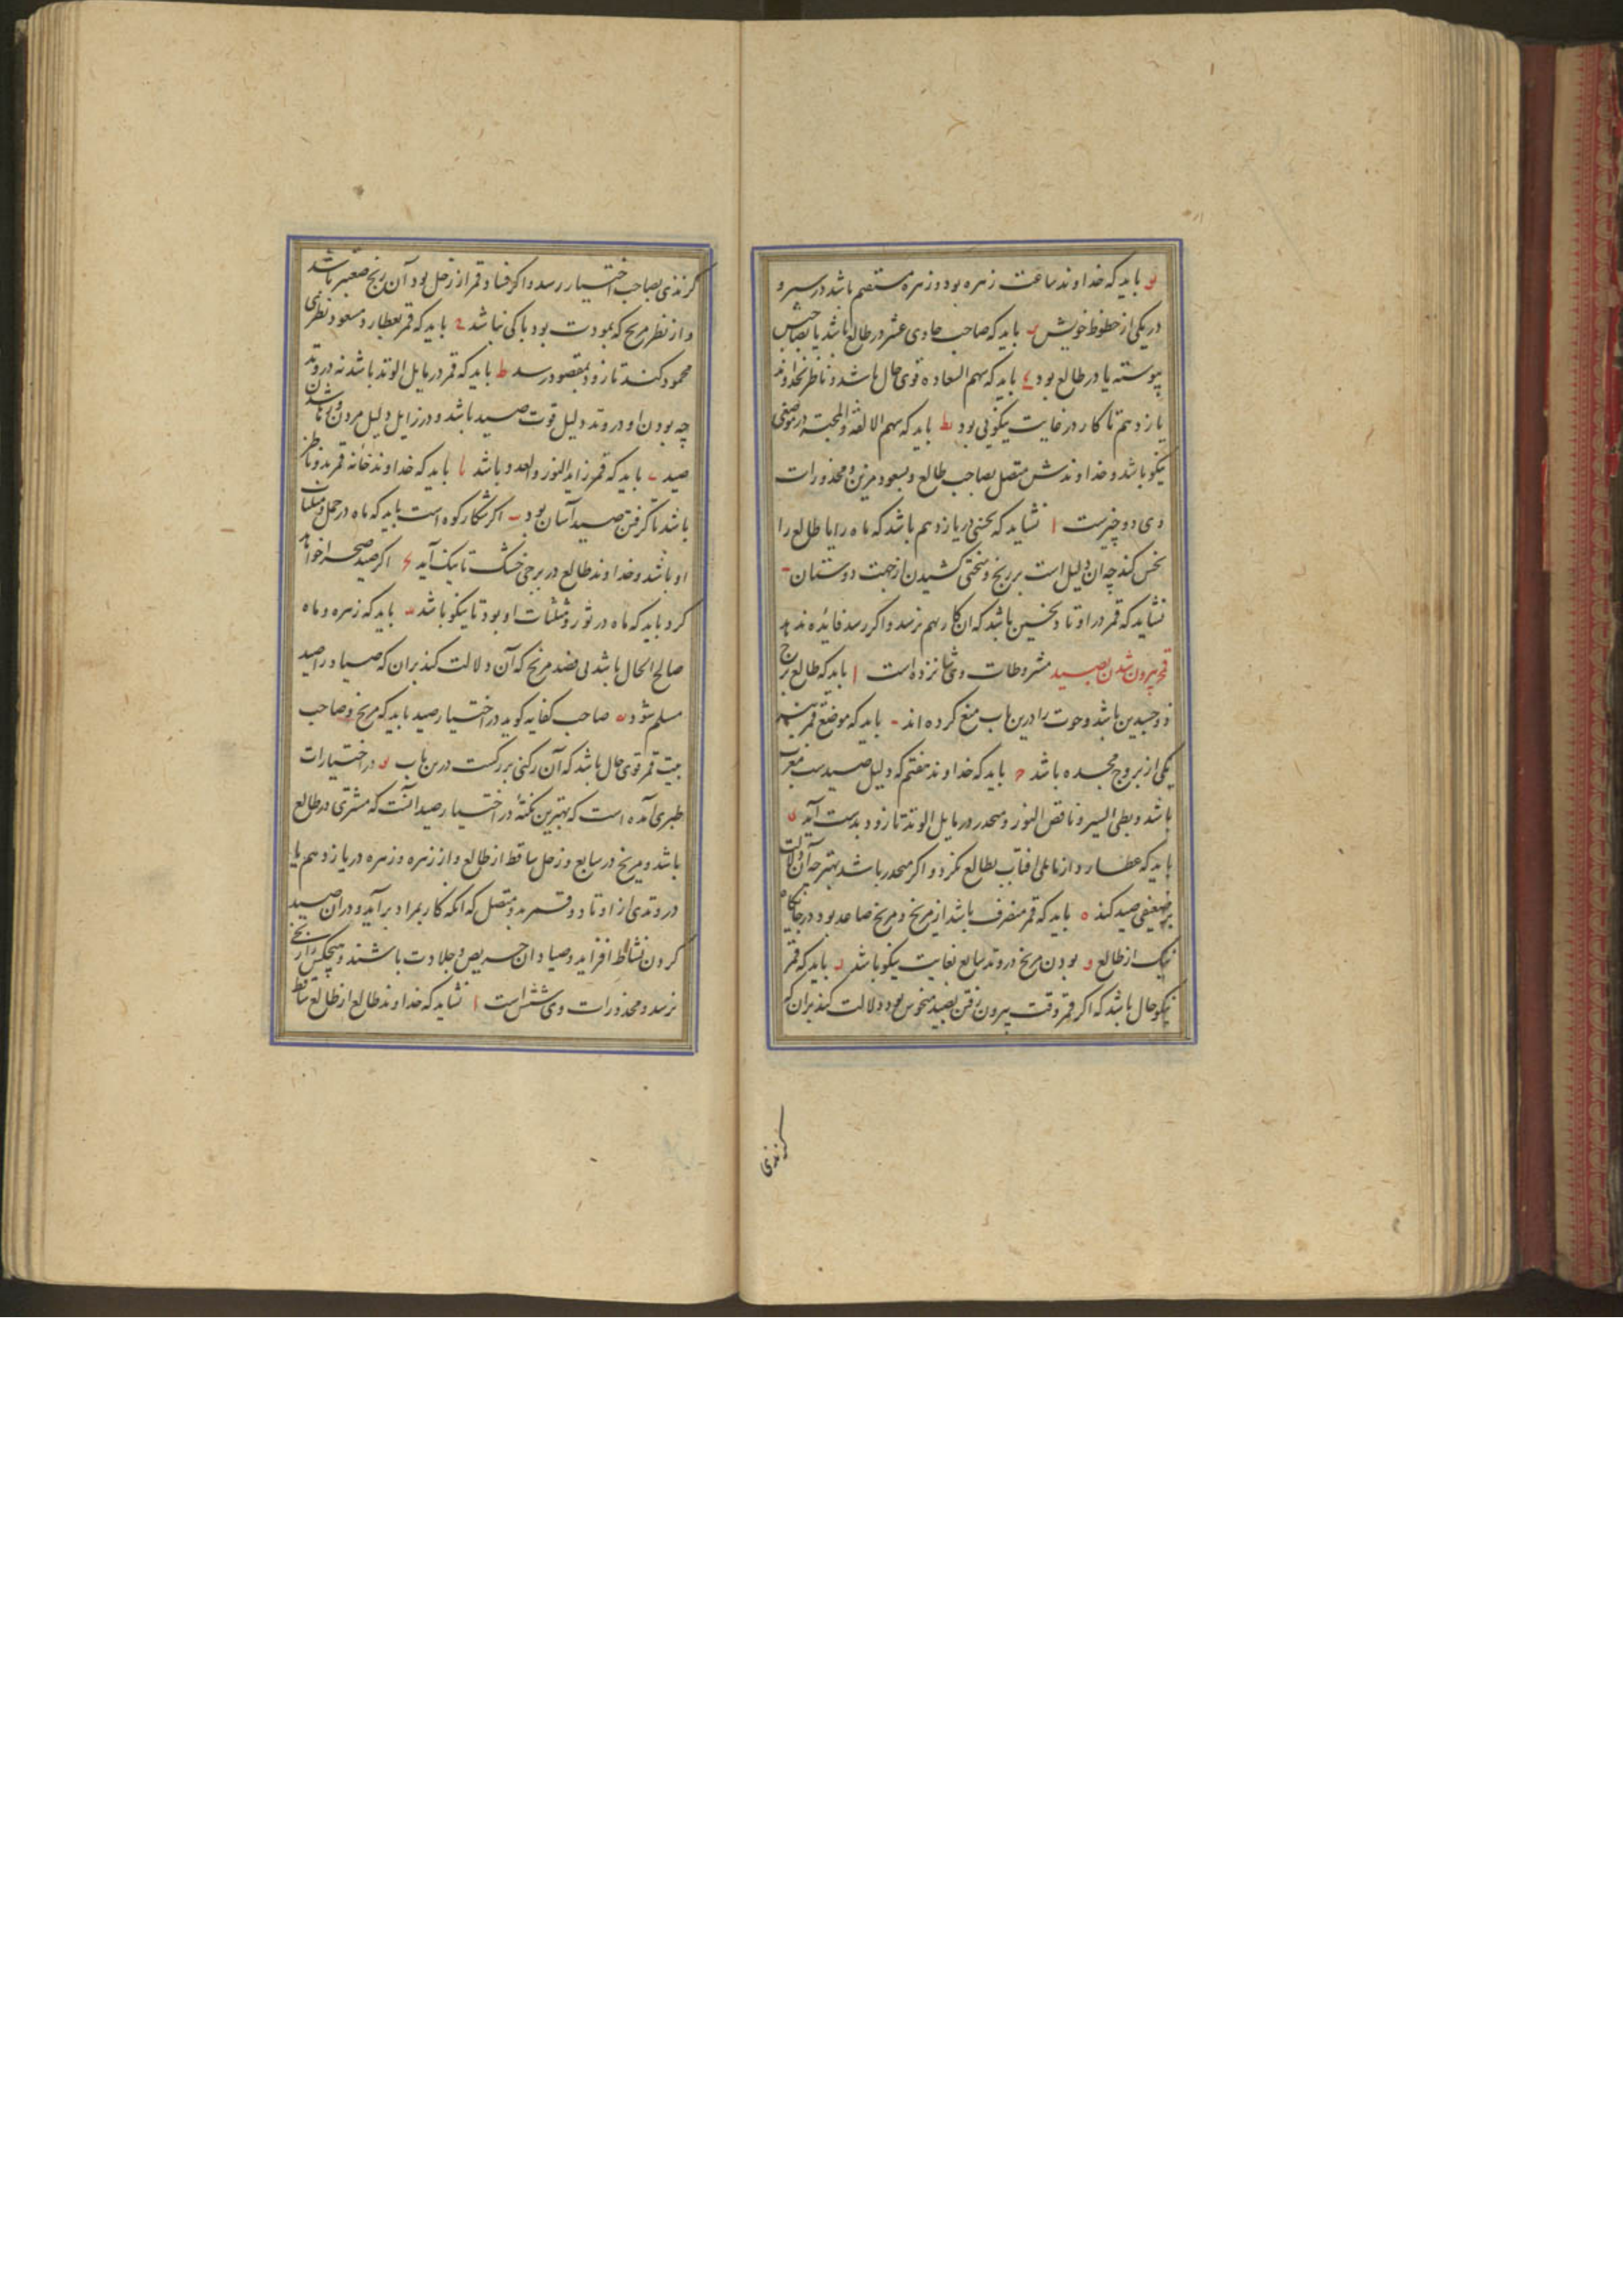 یو باید که خداوند ساعت زهره بود و زهره مستقیم باشد در سیر و
در یکی از حظوظ خویش یر باید که صاحب حادی عشر در طالع باشد یا بصاحبش
پیوسته یا در طالع بود یح باید که سهم السعاده قوی حال باشد و ناظر بخداوند
یازدهم تا کار در غایت نیکویی بود یط باید که سهم الالفة والمحبة در موضعی
نیکو باشد و خداوندش متصل بصاحب طالع و بسعود مزین و محذورات
وی دو چیزست ا نشاید که نحسی در یازدهم باشد که ماه را یا طالع را
نحس کند چه ان دلیل است بر رنج و سختی کشیدن از جهت دوستان ب
نشاید که قمر در اوتاد نحسین باشد که ان کار بهم نرسد و اکر رسد فایده ندهد
قح بیرون شدن بصید مشروطات وی شانزده است ا باید که طالع برج
ذوجسدین باشد و حوت را درین باب منع کرده اند ب باید که موضع قمر نیز
یکی از بروج مجسده باشد ج باید که خداوند هفتم که دلیل صیدست مغرب
باشد و بطی السیر و ناقص النور و منحدر در مایل الوتد تا زود بدست آید د
باید که عطارد از ماه یا افتاب بطالع نکرد و اکر منحدر باشد بهتر چه آن دلالت
بر ضعیفی صید کند ه باید که قمر منصرف باشد از مریخ و مریخ صاعد بود در جایگاه
نیک از طالع و بودن مریخ در وتد سابع بغایت نیکو باشد ر باید که قمر
نیکو حال باشد که اکر قمر وقت بیرون رفتن بصید منحوس بود دلالت کند بران که
کزندی
کزندی بصاحب اختیار رسد و اکر فساد قمر از زحل بود آن رنج صعبتر باشد
و از نظر مریخ که بمودت بود باکی نباشد ح باید که قمر بعطارد و مسعود نظری
محمود کند تا زود بمقصود رسد ط باید که قمر در مایل الوتد باشد نه در وتد
چه بودن او در وتد دلیل قوت صید باشد و در زایل دلیل مردن و ناشدن
صید ی باید که قمر زاید النور والعدد باشد یا باید که خداوند خانه قمر بدو ناظر
باشد تا کرفتن صید آسان بود یب اکر شکار کوه است باید که ماه در حمل و مثلثات
او باشد و خداوند طالع در برجی خشک تا نیک آید یج اکر صید صحرا خواهد
کرد باید که ماه در ثور و مثلثات او بود تا نیکو باشد ید باید که زهره و ماه
صالح الحال باشد بی قصد مریخ که آن دلالت کند بران که صیاد را صید
مسلم شود یه صاحب کفایه کوید در اختیار صید باید که مریخ و صاحب
بیت قمر قوی حال باشد که آن رکنی بزرکست درین باب یو در اختیارات
طبری آمده است که بهترین نکتهٔ در اختیار صید آنست که مشتری در طالع
باشد و مریخ در سابع و زحل ساقط از طالع و از زهره و زهره در یازدهم یا
در وتدی از اوتاد و قمر بدو متصل که انکه کار بمراد برآید و در ان صید
کردن نشاط افزاید و صیادان حریص و جلادت باشند و هیچکس را رنجی
نرسد و محذورات وی شش است ا نشاید که خداوند طالع از طالع ساقط